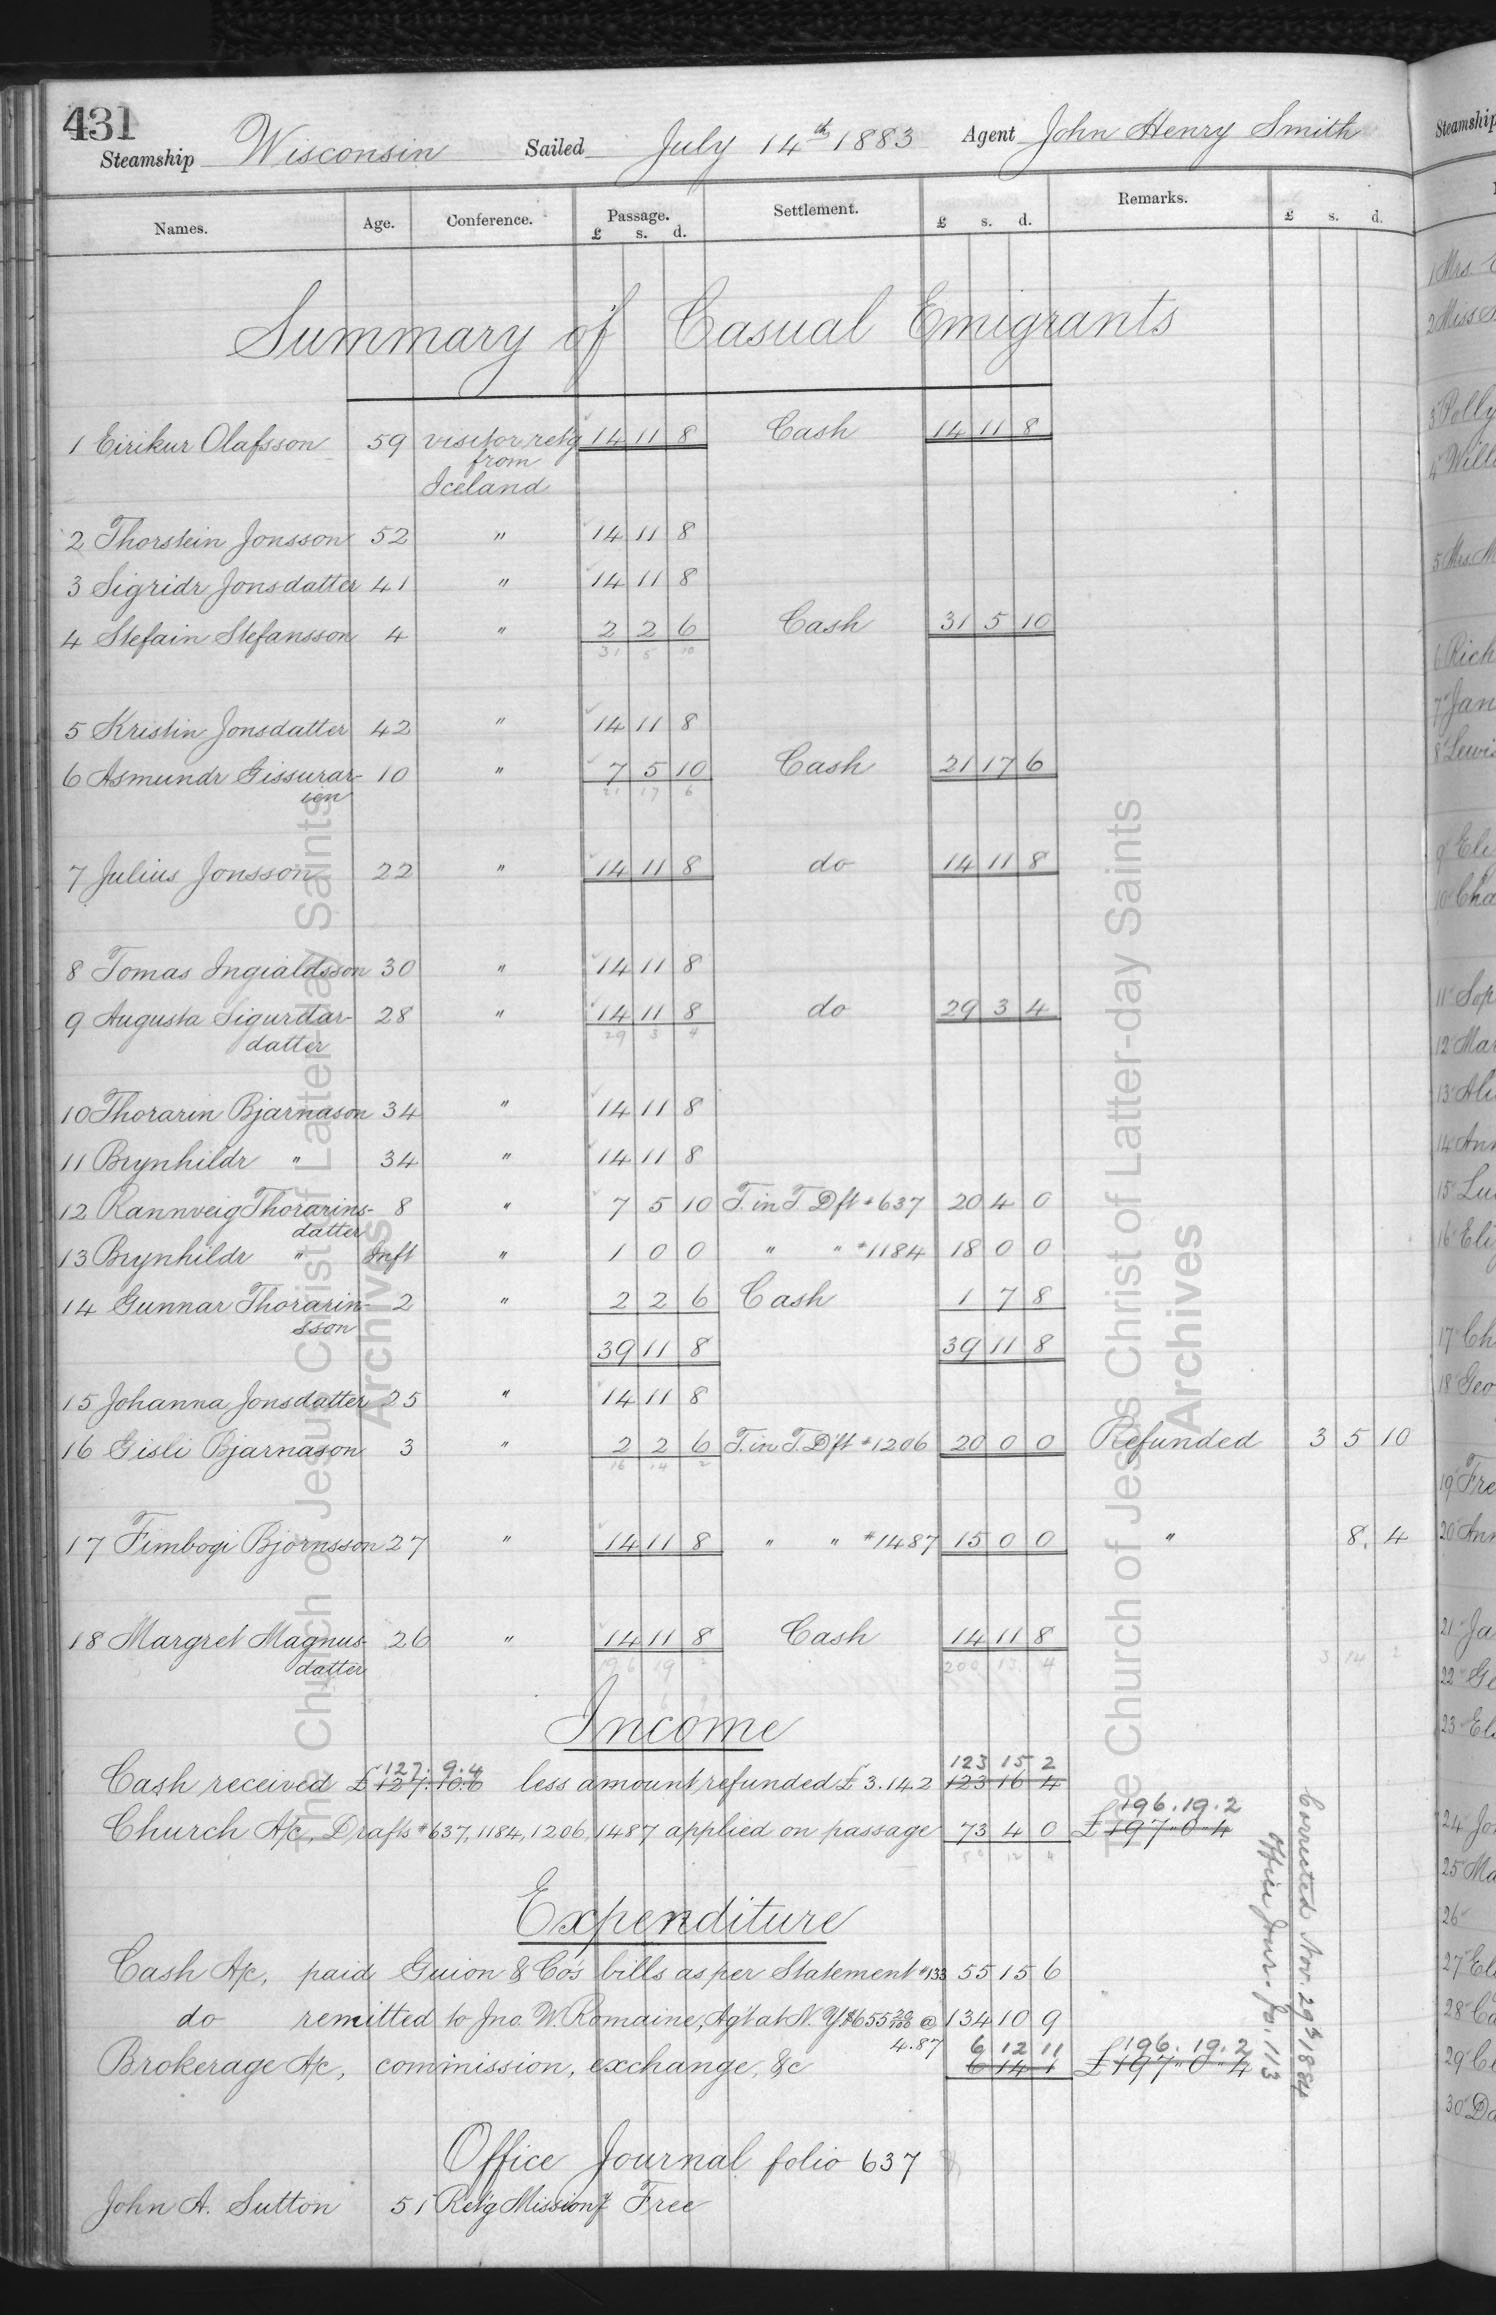 431
Steamship Wisconsin Sailed July 14th 1883 Agent John Henry Smith
Names. Age. Conference. Passage. £ s. d. Settlement. £ s. d. Remarks. £ s. d.
Summary of Casual Emigrants
1 Eirikur Olafsson 59 visitor ret'g 14 11 8 Cash 14 11 8
from
Iceland
2 Thorstein Jonsson 52 " 14 11 8
3 Sigridr Jonsdatter 41 " 14 11 8
4 Stefain Stefansson 4 " 2 2 6 Cash 31 5 10
31 5 10
5 Kristin Jonsdatter 42 " 14 11 8
6 Asmundr Gissurar- 10 " 7 5 10 Cash 21 17 6
ien 21 17 6
7 Julius Jonsson 22 " 14 11 8 do 14 11 8
8 Tomas Ingialdsson 30 " 14 11 8
9 Augusta Sigurdar- 28 " 14 11 8 do 29 3 4
datter 29 3 4
10 Thorarin Bjarnason 34 " 14 11 8
11 Brynhildr " 34 " 14 11 8
12 Rannveig Thorarins- 8 " 7 5 10 T. in T. Dft #637 20 4 0
datter
13 Brynhildr " Inft " 1 0 0 " " #1184 18 0 0
14 Gunnar Thorarin- 2 " 2 2 6 Cash 1 7 8
sson
39 11 8 39 11 8
15 Johanna Jonsdatter 25 " 14 11 8
16 Gisli Bjarnason 3 " 2 2 6 T. in T. D'ft #1206 20 0 0 Refunded 3 5 10
16 14 2
17 Fimbogi Bjornsson 27 " 14 11 8 " " #1487 15 0 0 " 8. 4
18 Margret Magnus- 26 " 14 11 8 Cash 14 11 8
datter 196 19 2 200 13 4 3 14 2
Income
127. 9. 4 123 15 2
Cash received £127.10.6 less amount refunded £3.14.2 123 16 4
£196.19.2
Church A/c, Drafts #637, 1184, 1206, 1487 applied on passage 73 4 0 £197"0"4
Expenditure
Cash A/c, paid Guion & Co's bills as per Statement #133 55 15 6
do remitted to Jno. W. Romaine, Ag't at N. Y. $655 @ 134 10 9
4.87 6 12 11 196. 19. 2
Brokerage A/c, commission, exchange, &c 6 14 1 £197"0"4
Corrected Nov. 29th 1884
Office Jour. fo. 113
Office Journal folio 637
John A. Sutton 51 Ret'g Mission'y Free
The Church of Jesus Christ of Latter-day Saints
Archives
The Church of Jesus Christ of Latter-day Saints
Archives
Steamship
1 Mrs.
2 Miss
3 Polly
4 Will
5 Mrs. M
6 Rich
7 Jan
8 Lewis
9 Eli
10 Cha
11 Sop
12 Mar
13 Ali
14 Ann
15 Lu
16 Eliz
17 Ch
18 Geo
19 Fre
20 Ann
21 Ja
22 Ge
23 El
24 Jo
25 Ma
26
27 El
28 Ca
29
30 Da